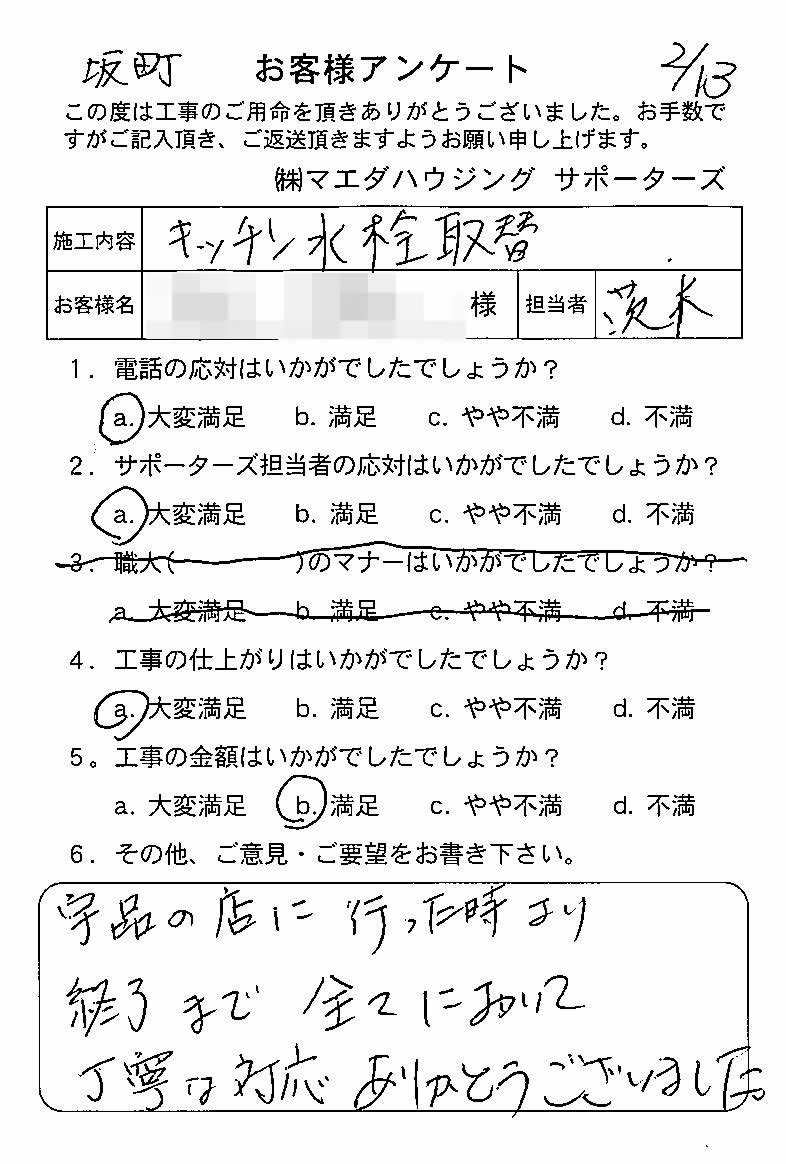 坂町 お客様アンケート 2/13
この度は工事のご用命を頂きありがとうございました。お手数で
すがご記入頂き、ご返送頂きますようお願い申し上げます。
㈱マエダハウジング サポーターズ
施工内容 キッチン水栓取替
お客様名 様 担当者 茨木
1. 電話の応対はいかがでしたでしょうか?
a. 大変満足 b. 満足 c. やや不満 d. 不満
2. サポーターズ担当者の応対はいかがでしたでしょうか?
a. 大変満足 b. 満足 c. やや不満 d. 不満
3. 職人( )のマナーはいかがでしたでしょうか?
a. 大変満足 b. 満足 c. やや不満 d. 不満
4. 工事の仕上がりはいかがでしたでしょうか?
a. 大変満足 b. 満足 c. やや不満 d. 不満
5。工事の金額はいかがでしたでしょうか?
a. 大変満足 b. 満足 c. やや不満 d. 不満
6. その他、ご意見・ご要望をお書き下さい。
宇品の店に行った時より
終了まで全てにおいて
丁寧な対応ありがとうございました。